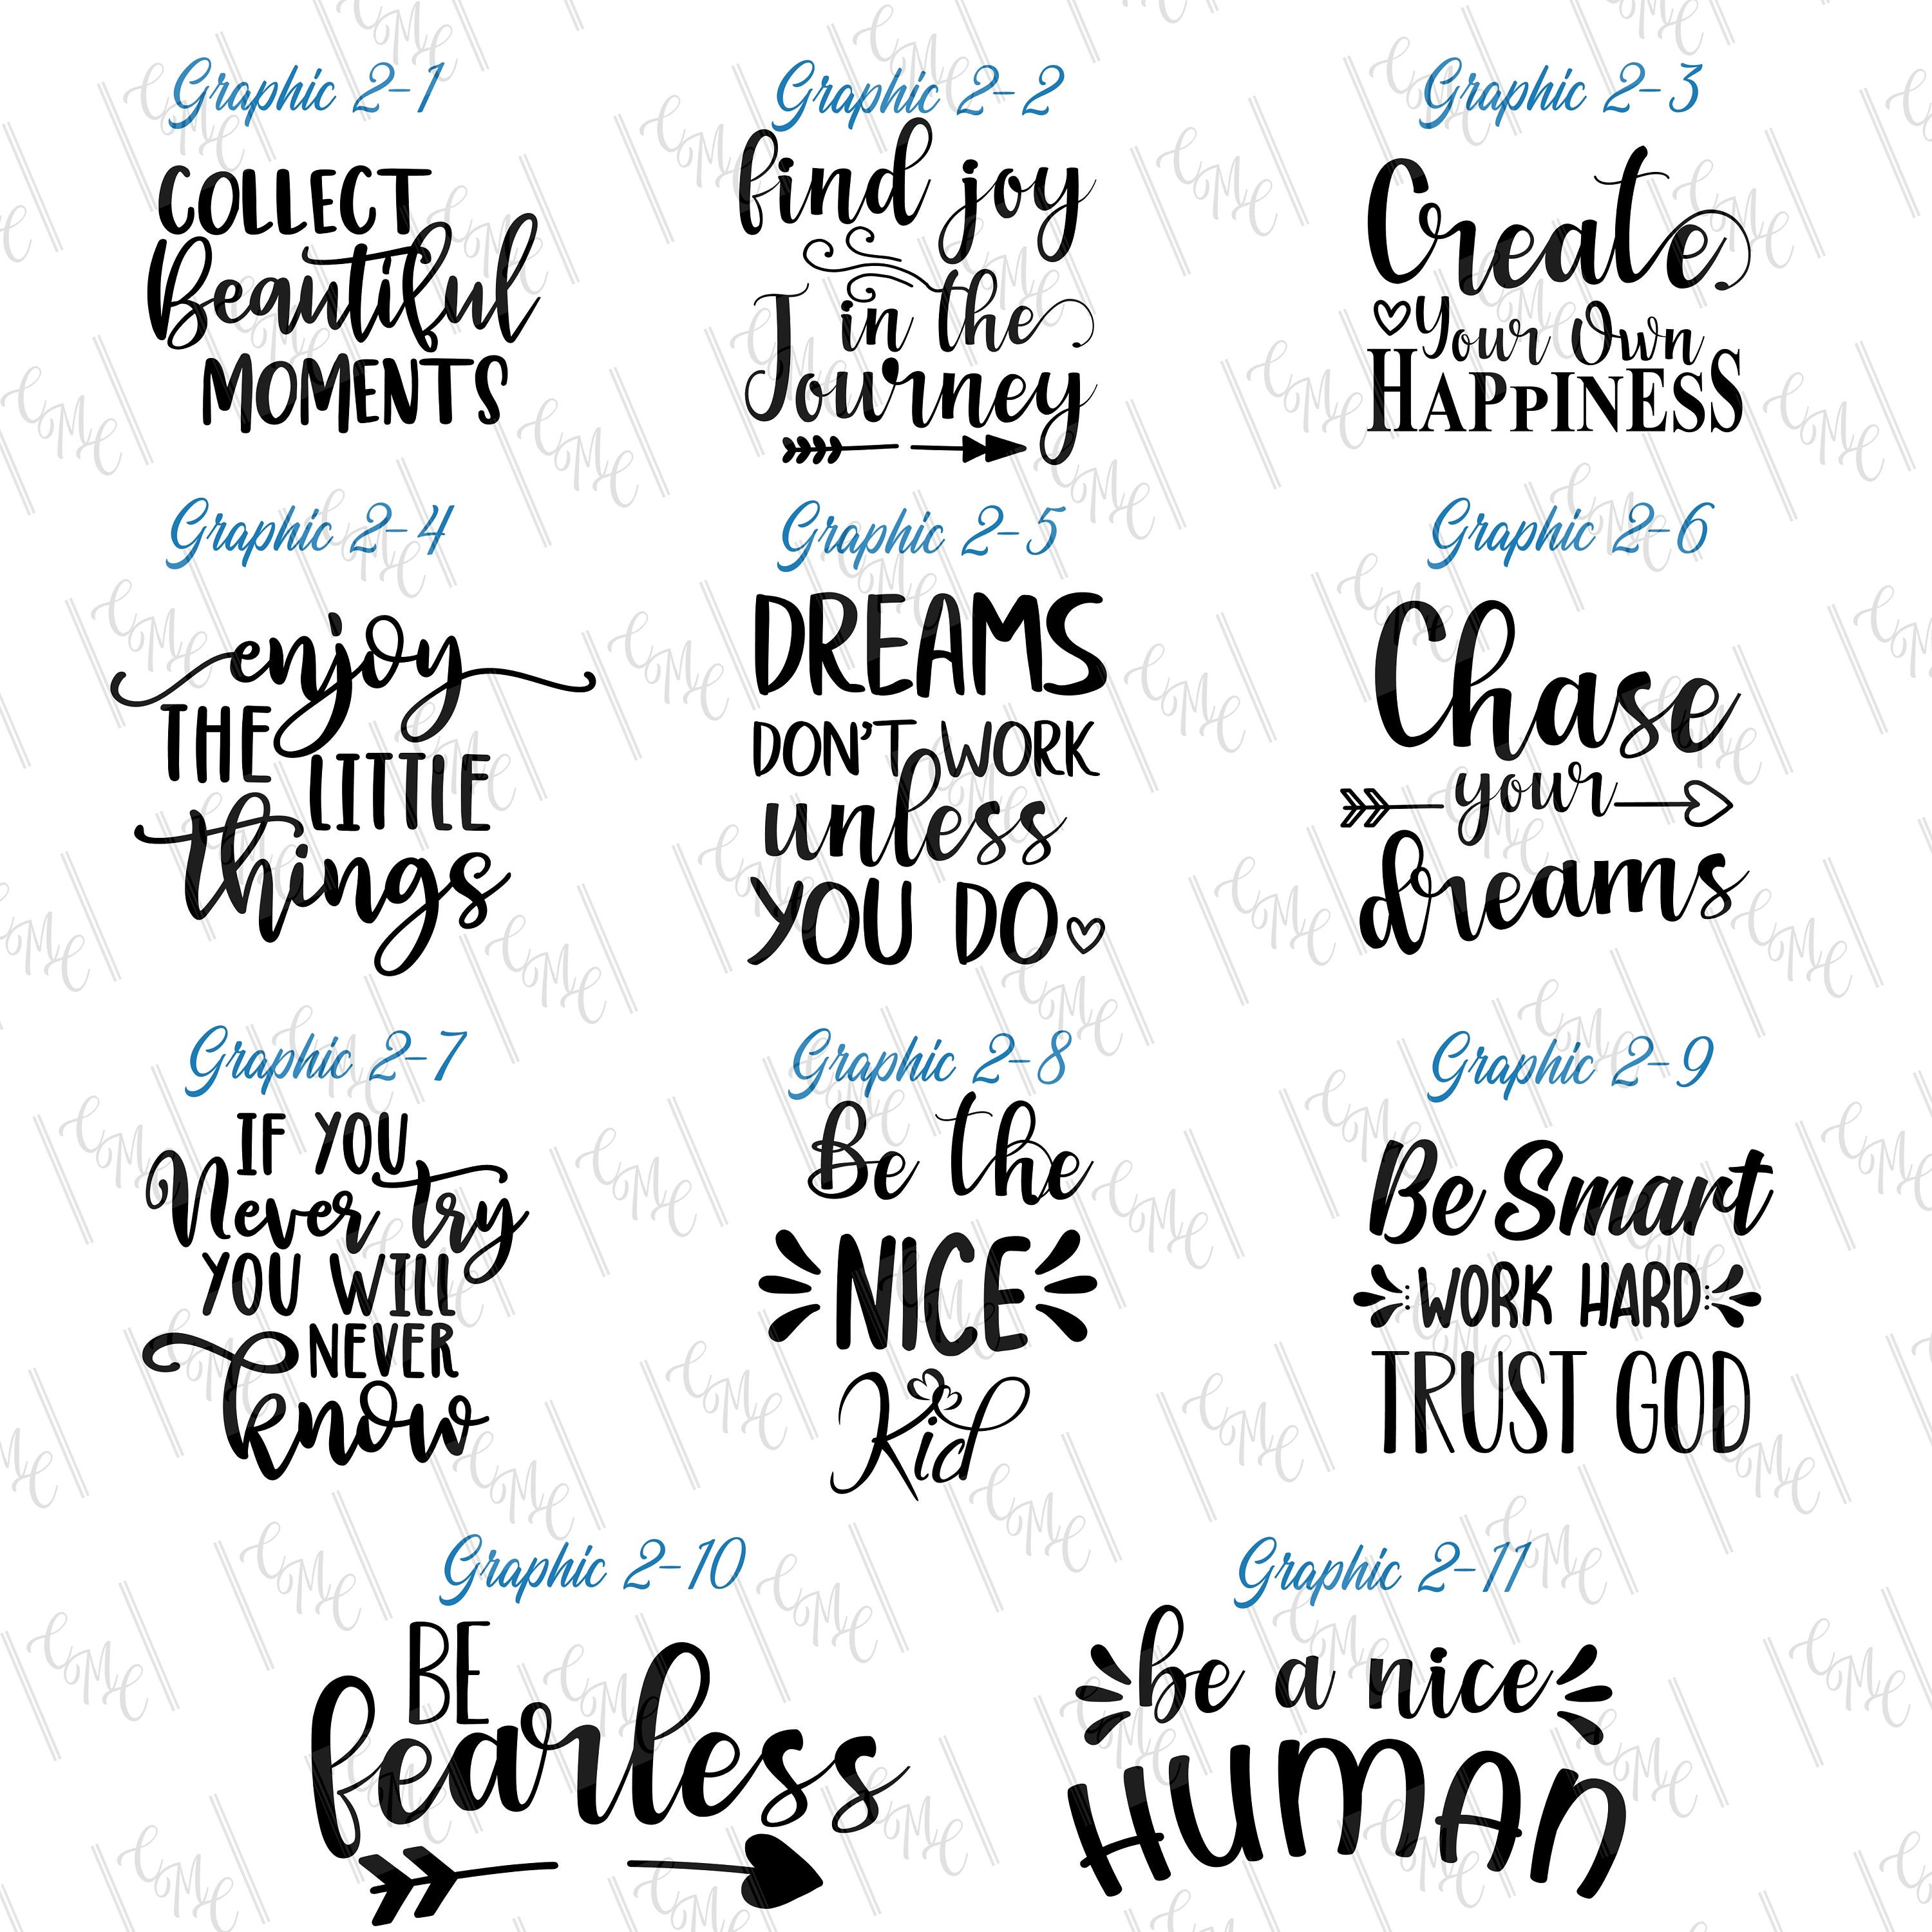 Graphic 2-1
COLLECT
Beautiful
MOMENTS
Graphic 2-2
find joy
in the
Journey
Graphic 2-3
Create
Your Own
HAPPINESS
Graphic 2-4
enjoy
THE LITTLE
things
Graphic 2-5
DREAMS
DON'T WORK
unless
YOU DO
Graphic 2-6
Chase
your
dreams
Graphic 2-7
IF YOU
Never try
YOU WILL
NEVER
know
Graphic 2-8
Be the
NICE
Kid
Graphic 2-9
Be Smart
WORK HARD
TRUST GOD
Graphic 2-10
BE
fearless
Graphic 2-11
be a nice
HUMAN